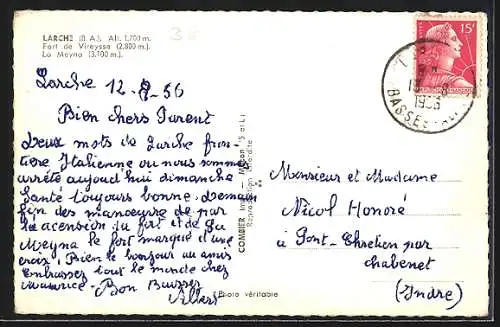 LARCHE (B. A.). Alt. 1.700 m.
Fort de Vireysse (2.800 m.)
La Meyna (3.100 m.)
Larche 12-8-56
Bien chers Parent
Deux mots de Larche fron-
tière Italienne ou nous somme
arrêté aujourd'hui dimanche
Santé toujours bonne. Demain
fin des manœuvre de par
la acension du fort et de La
Meyna le fort marqué d'une
croix, Bien le bonjour au amis
Embrasser tout le monde chez
Maurice - Bon Baisser
Albert
COMBIER Mâcon (S et L)
Reproduction Interdite
Photo véritable
15F
1956
BASSES
Monsieur et Madame
Nicol Honoré
à Pont-Chretien par
chabenet
(Indre)